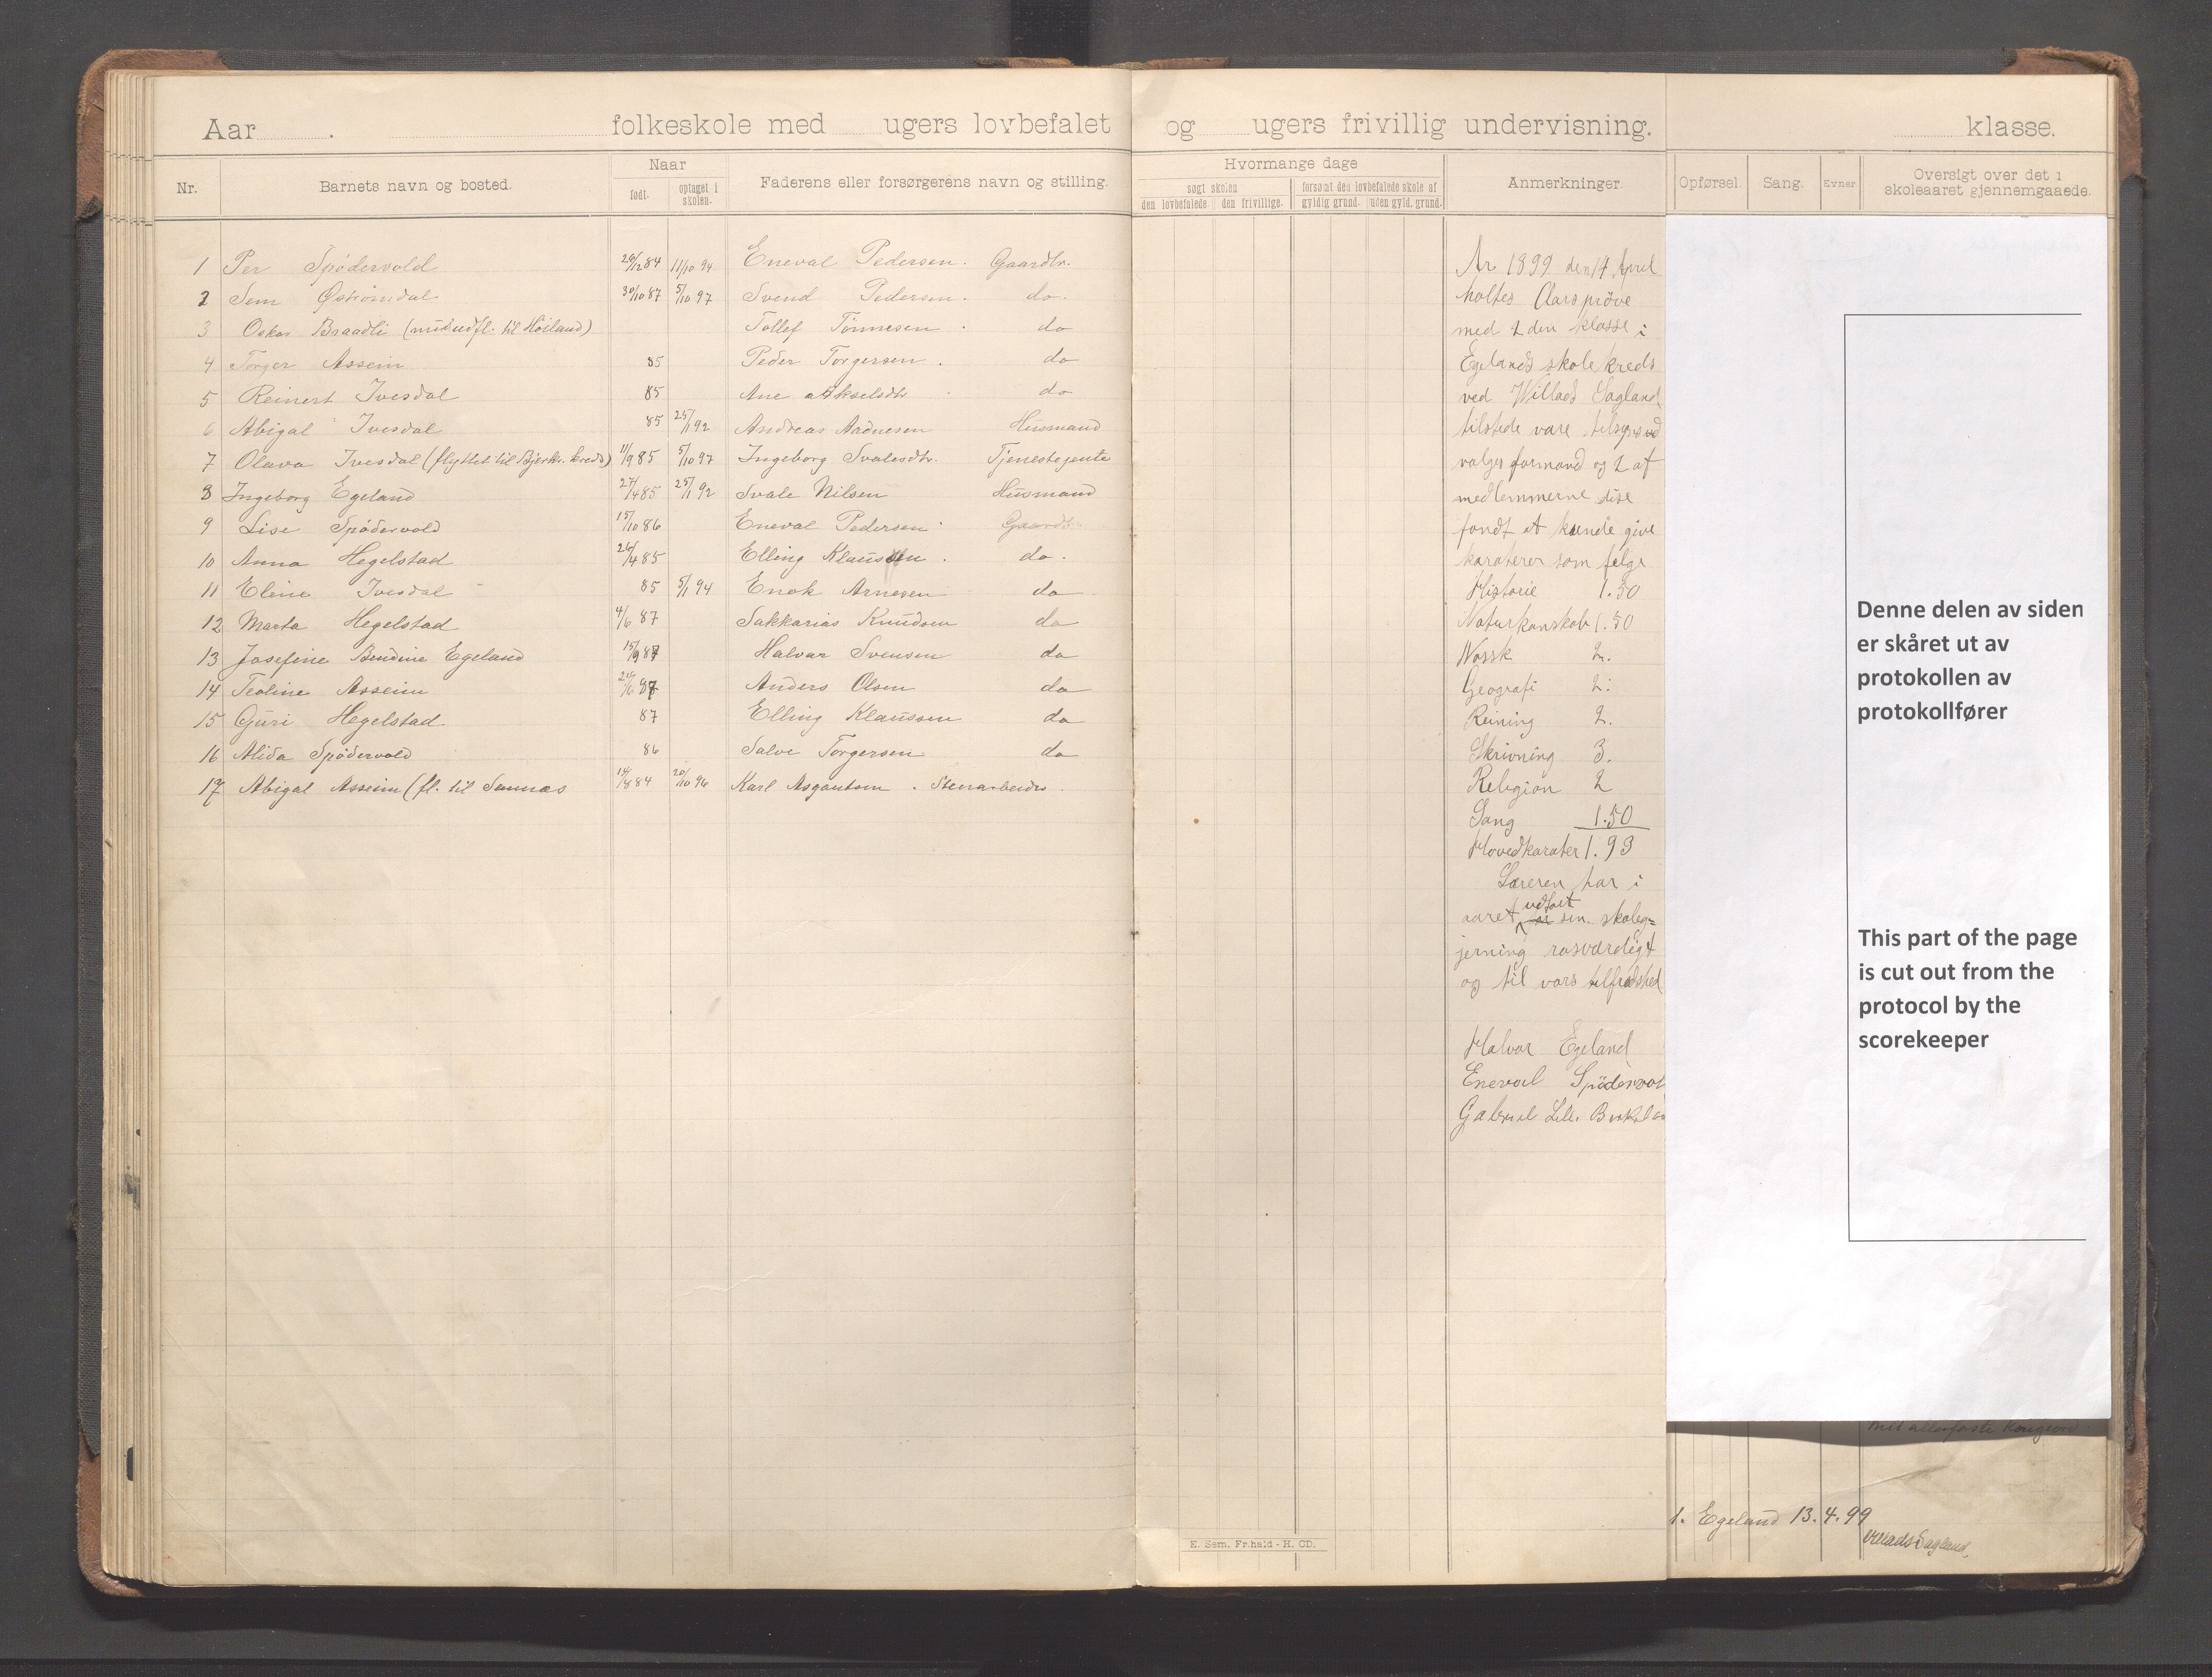 Aar . folkeskole med ugers lovbefalet og ugers frivillig undervisning. klasse.
Nr. Barnets navn og bosted. Naar Faderens eller forsørgerens navn og stilling. Hvormange dage Anmerkninger. Opførsel. Sang. Evner. Oversigt over det i
skoleaaret gjennemgaaede.
født. optaget i skolen. søgt skolen forsømt den lovbefalede skole af
den lovbefalede. den frivillige. gyldig grund. uden gyld. grund.
1 Per Spødervold 29/12 84 11/10 94 Eneval Pedersen. Gaardbr.
2 Sem Østrømdal 30/10 87 5/10 97 Svend Pedersen. do.
3 Oskar Braadli (udfl. til Høiland) Tollef Tønnesen. do
4 Torger Asseim 85 Peder Torgersen. do
5 Reinert Ivesdal 85 Ane Akselsdtr. do
6 Abigal Ivesdal 85 25/1 92 Andreas Aadnesen Husmand
7 Olava Ivesdal (flyttet til Bjerkr. kreds) 11/9 85 5/10 97 Ingeborg Svalesdtr. Tjenestejente
8 Ingeborg Egeland 27/4 85 25/1 92 Svale Nilsen Husmand
9 Lise Spødervold 15/10 86 Eneval Pedersen Gaardbr
10 Anna Hegelstad 26/4 85 Elling Klaussen. do.
11 Eline Ivesdal 85 5/1 94 Enok Arnesen do
12 Marta Hegelstad 4/6 87 Sakkarias Knudsen do
13 Josefine Bendine Egeland 15/9 87 Halvar Svensen do
14 Teoline Asseim 87 Anders Olsen do
15 Guri Hegelstad 87 Elling Klaussen do
16 Alida Spødervold 86 Salve Torgersen do
17 Abigal Asseim (fl. til Semnæs 14/8 84 20/10 96 Karl Asgautsen. Stenarbeider.
Ar 1899 den 14 April
holtes Aarsprøve
med 2 den klasse i
Egelands skolekreds
ved Willads Sagland
tilstede vare tilsyns
valgs formand og 2 af
medlemmerne dise
fandt at kunde give
karaterer som følge
Historie 1.50
Naturkanskab 1.50
Norsk 2.
Geografi 2.
Reining 2.
Skrivning 3.
Religion 2
Sang 1.50
Hovedkarater 1.93
Læreren har i
aaret udført sin skoleg=
jerning rosværdigt
og til vors tilfredshed
Halvar Egeland
Eneval Spødervol
Gabriel Lill. Birkelan
Denne delen av siden
er skåret ut av
protokollen av
protokollfører
This part of the page
is cut out from the
protocol by the
scorekeeper
1. Egeland 13.4.99
Willads Sagland.
E. Sem. Fr.hald - H. CD.